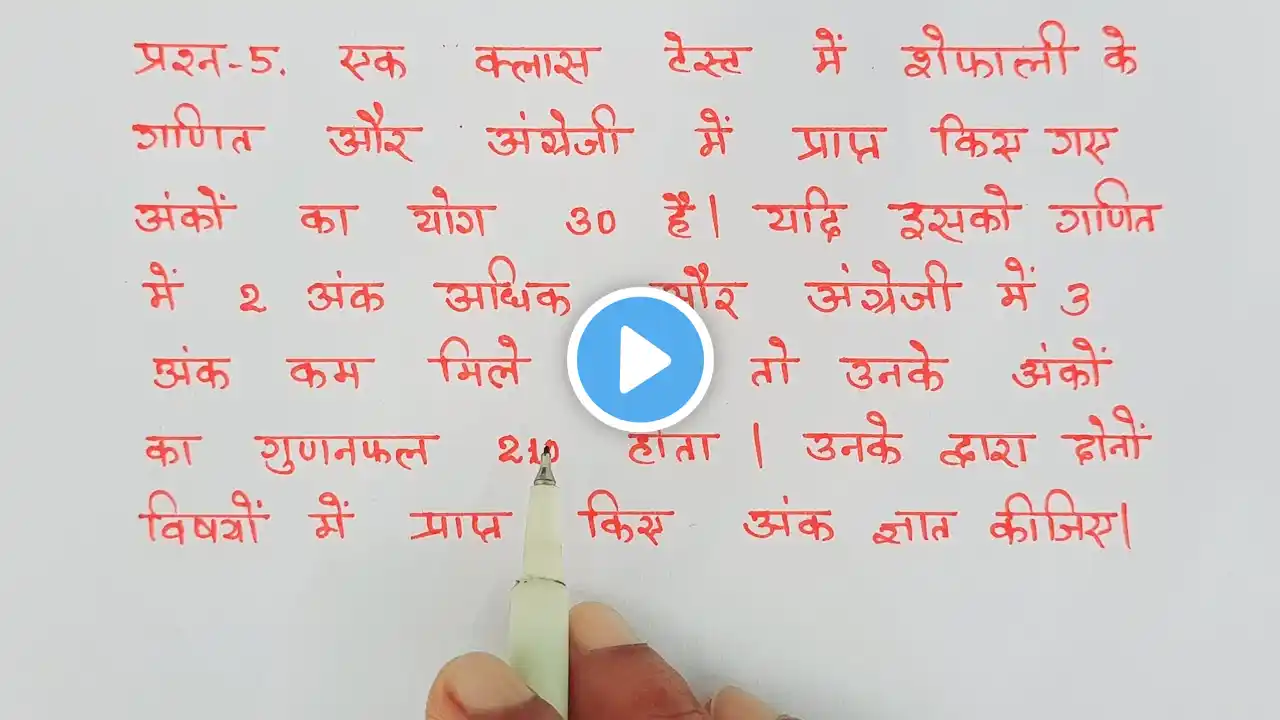 प्रश्न-5. एक क्लास टेस्ट में शेफाली के
गणित और अंग्रेजी में प्राप्त किए गए
अंकों का योग 30 है। यदि इसको गणित
में 2 अंक अधिक और अंग्रेजी में 3
अंक कम मिले तो उनके अंकों
का गुणनफल 210 होता। उनके द्वारा दोनों
विषयों में प्राप्त किए अंक ज्ञात कीजिए।